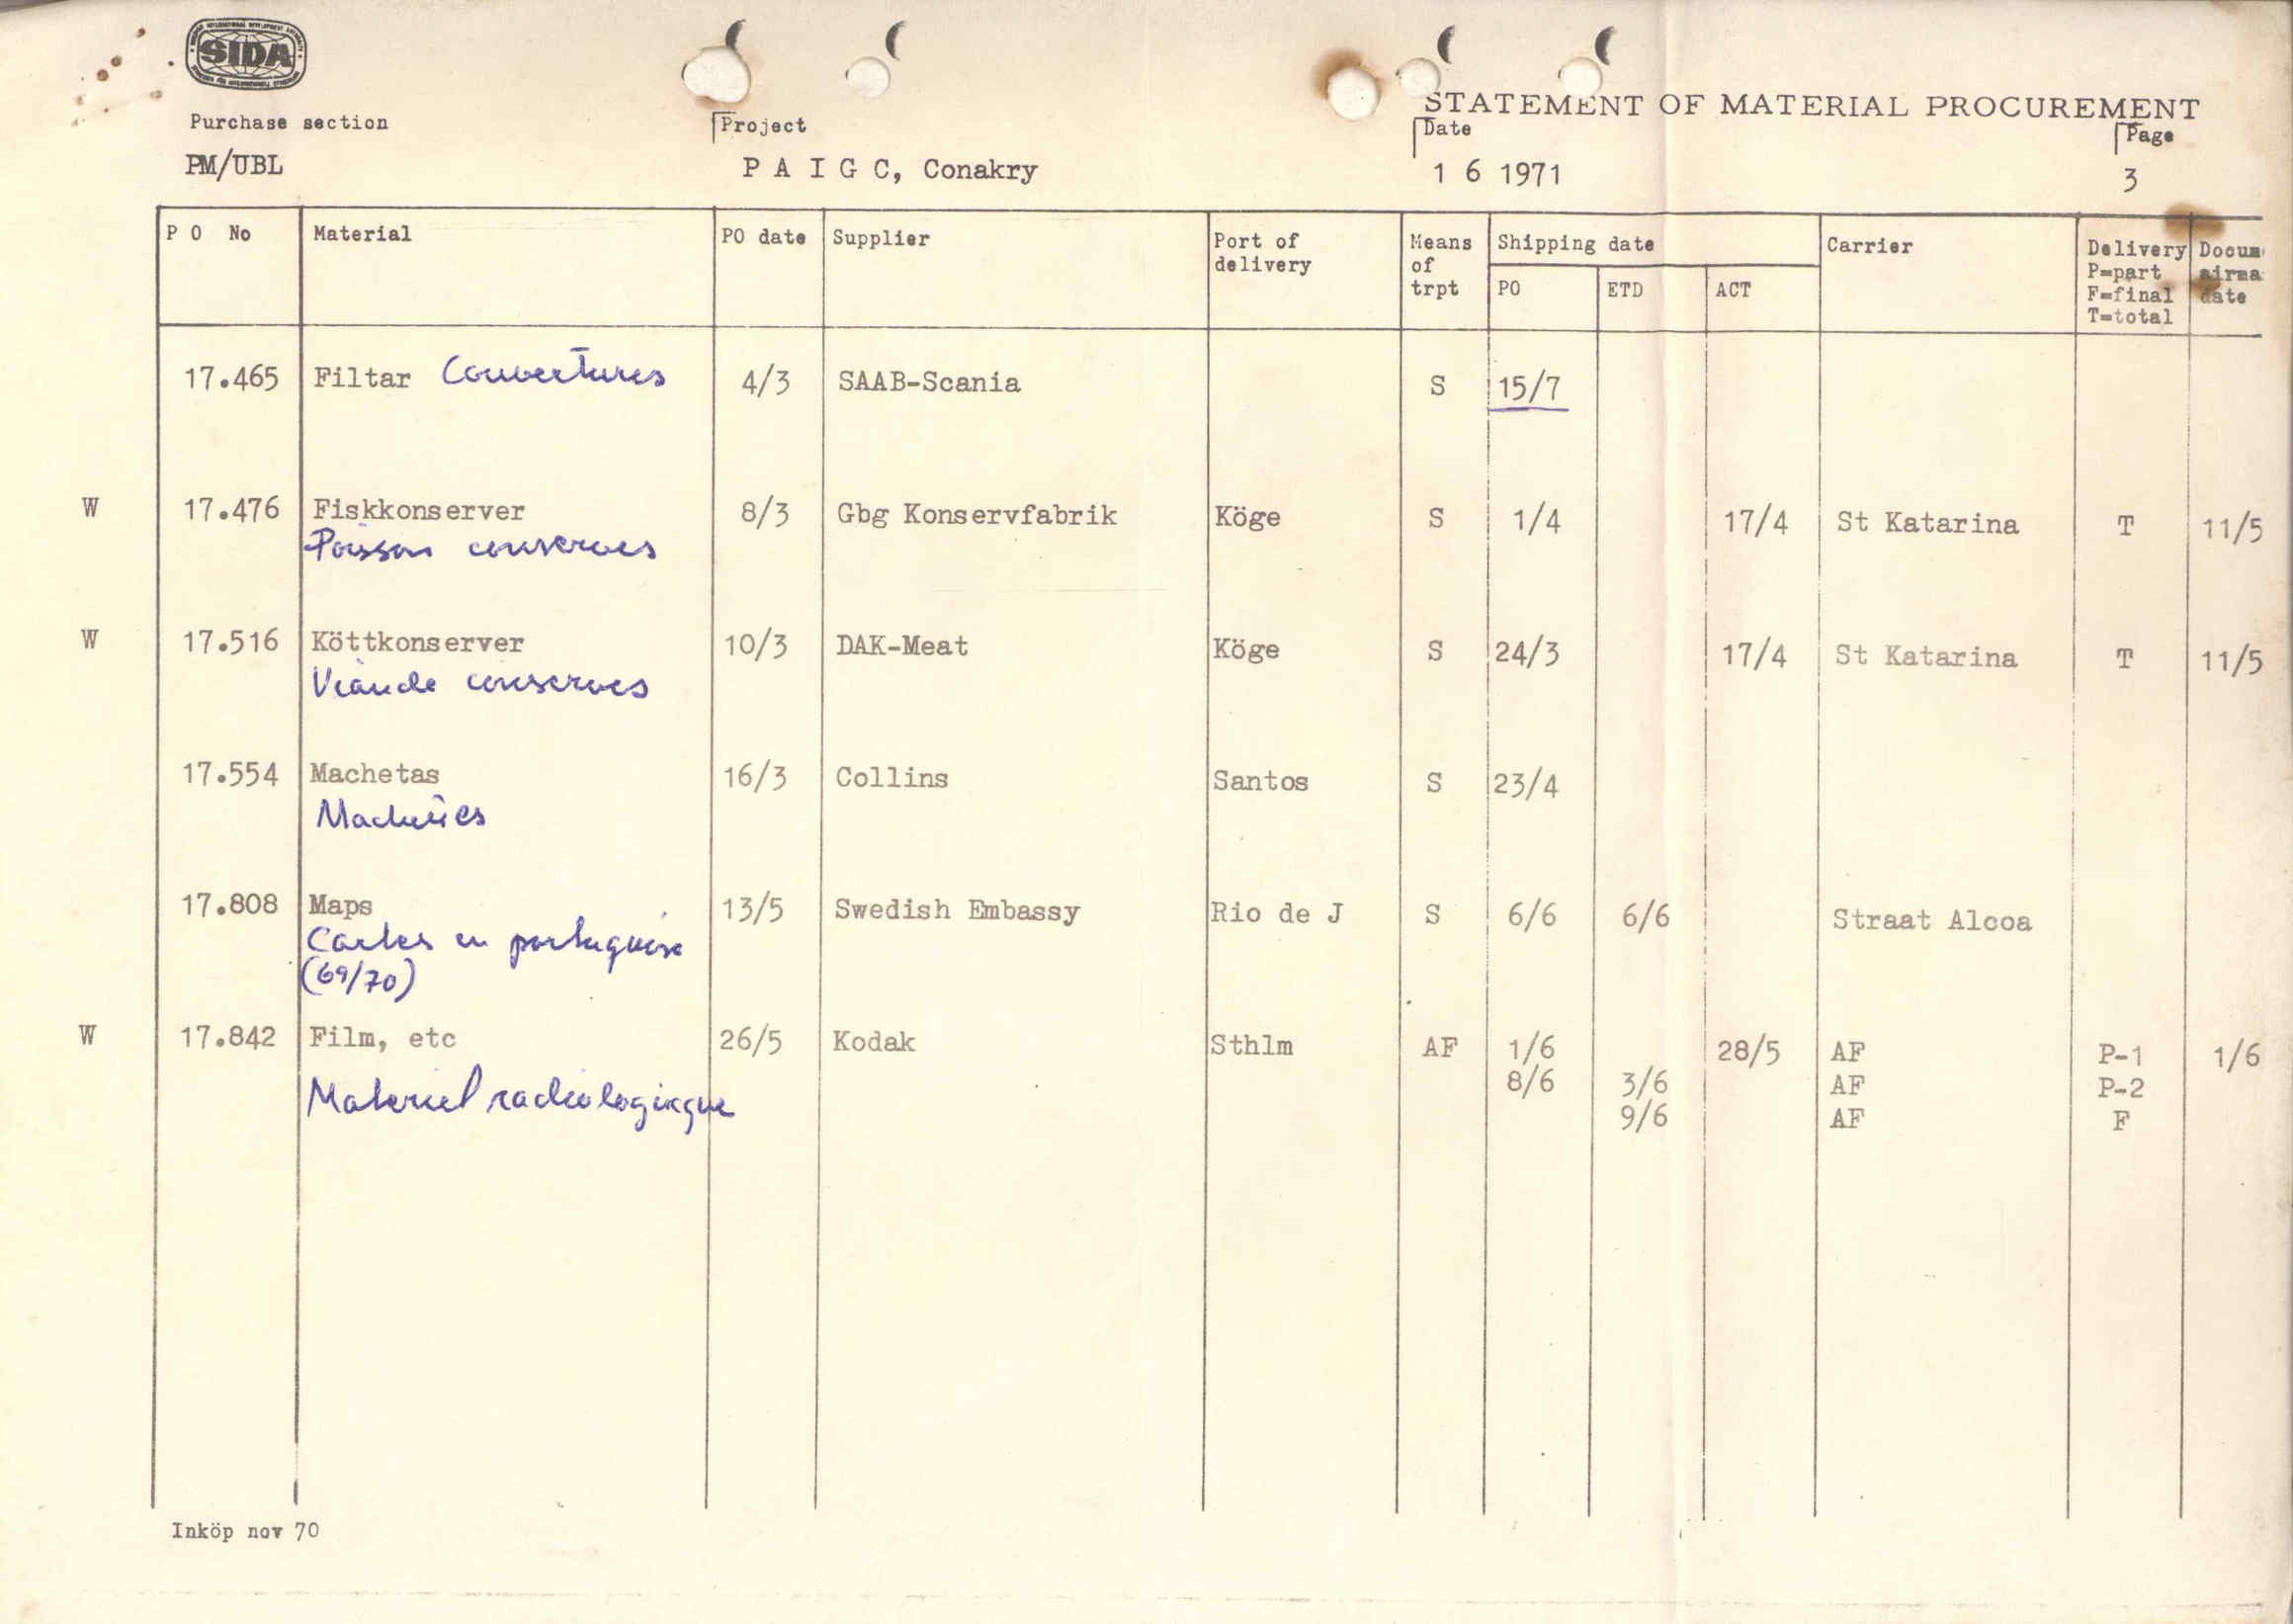 SIDA
STATEMENT OF MATERIAL PROCUREMENT
Purchase section
Project
Date
Page
PM/UBL
P A I G C, Conakry
1 6 1971
3
P O No
Material
PO date
Supplier
Port of
delivery
Means
of
trpt
Shipping date
PO
ETD
ACT
Carrier
Delivery
P=part
F=final
T=total
Docum
airma
date
17.465 Filtar Couvertures 4/3 SAAB-Scania S 15/7
W 17.476 Fiskkonserver 8/3 Gbg Konservfabrik Köge S 1/4 17/4 St Katarina T 11/5
Poisson conserves
W 17.516 Köttkonserver 10/3 DAK-Meat Köge S 24/3 17/4 St Katarina T 11/5
Viande conserves
17.554 Machetas 16/3 Collins Santos S 23/4
17.808 Maps 13/5 Swedish Embassy Rio de J S 6/6 6/6 Straat Alcoa
Cartes en portuguise
(69/70)
W 17.842 Film, etc 26/5 Kodak Sthlm AF 1/6 28/5 AF P-1 1/6
8/6 3/6 AF P-2
9/6 AF F
Materiel radiologique
Inköp nov 70